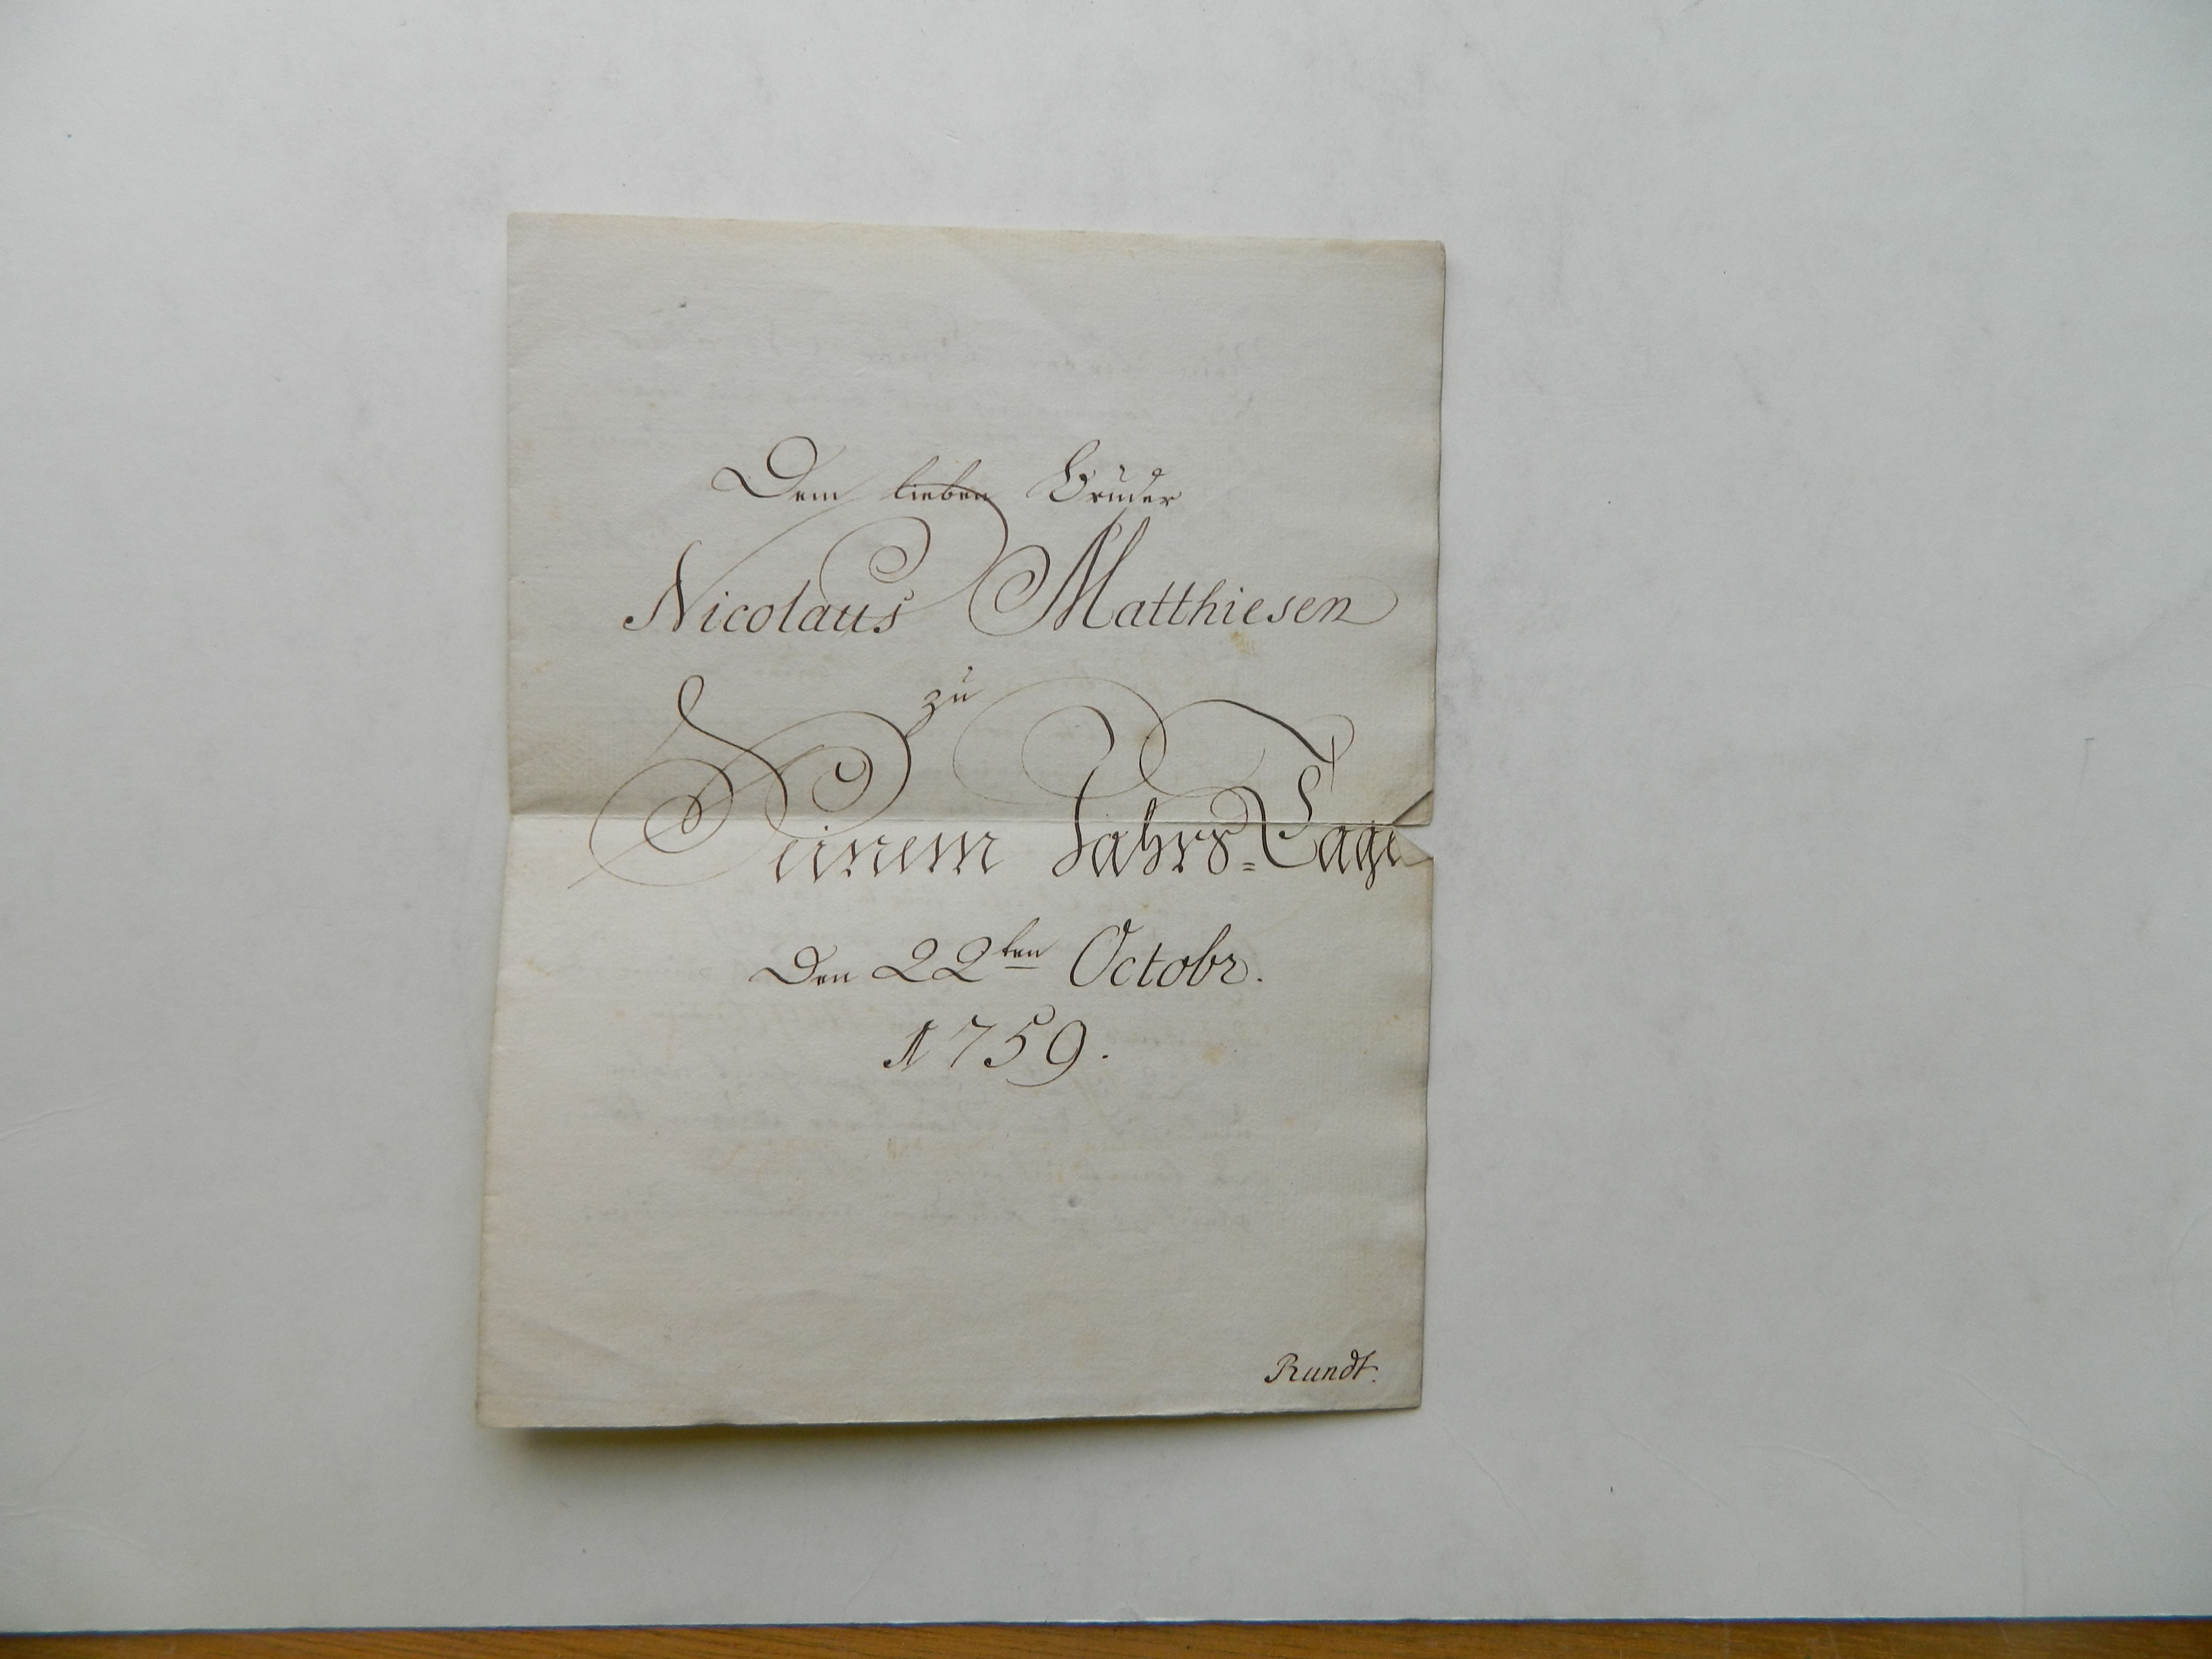 Dem lieben Bruder
Nicolaus Matthiesen
zu
Seinem Jahrs-Tage
Den 22ten Octobr.
1759.
Rundt.